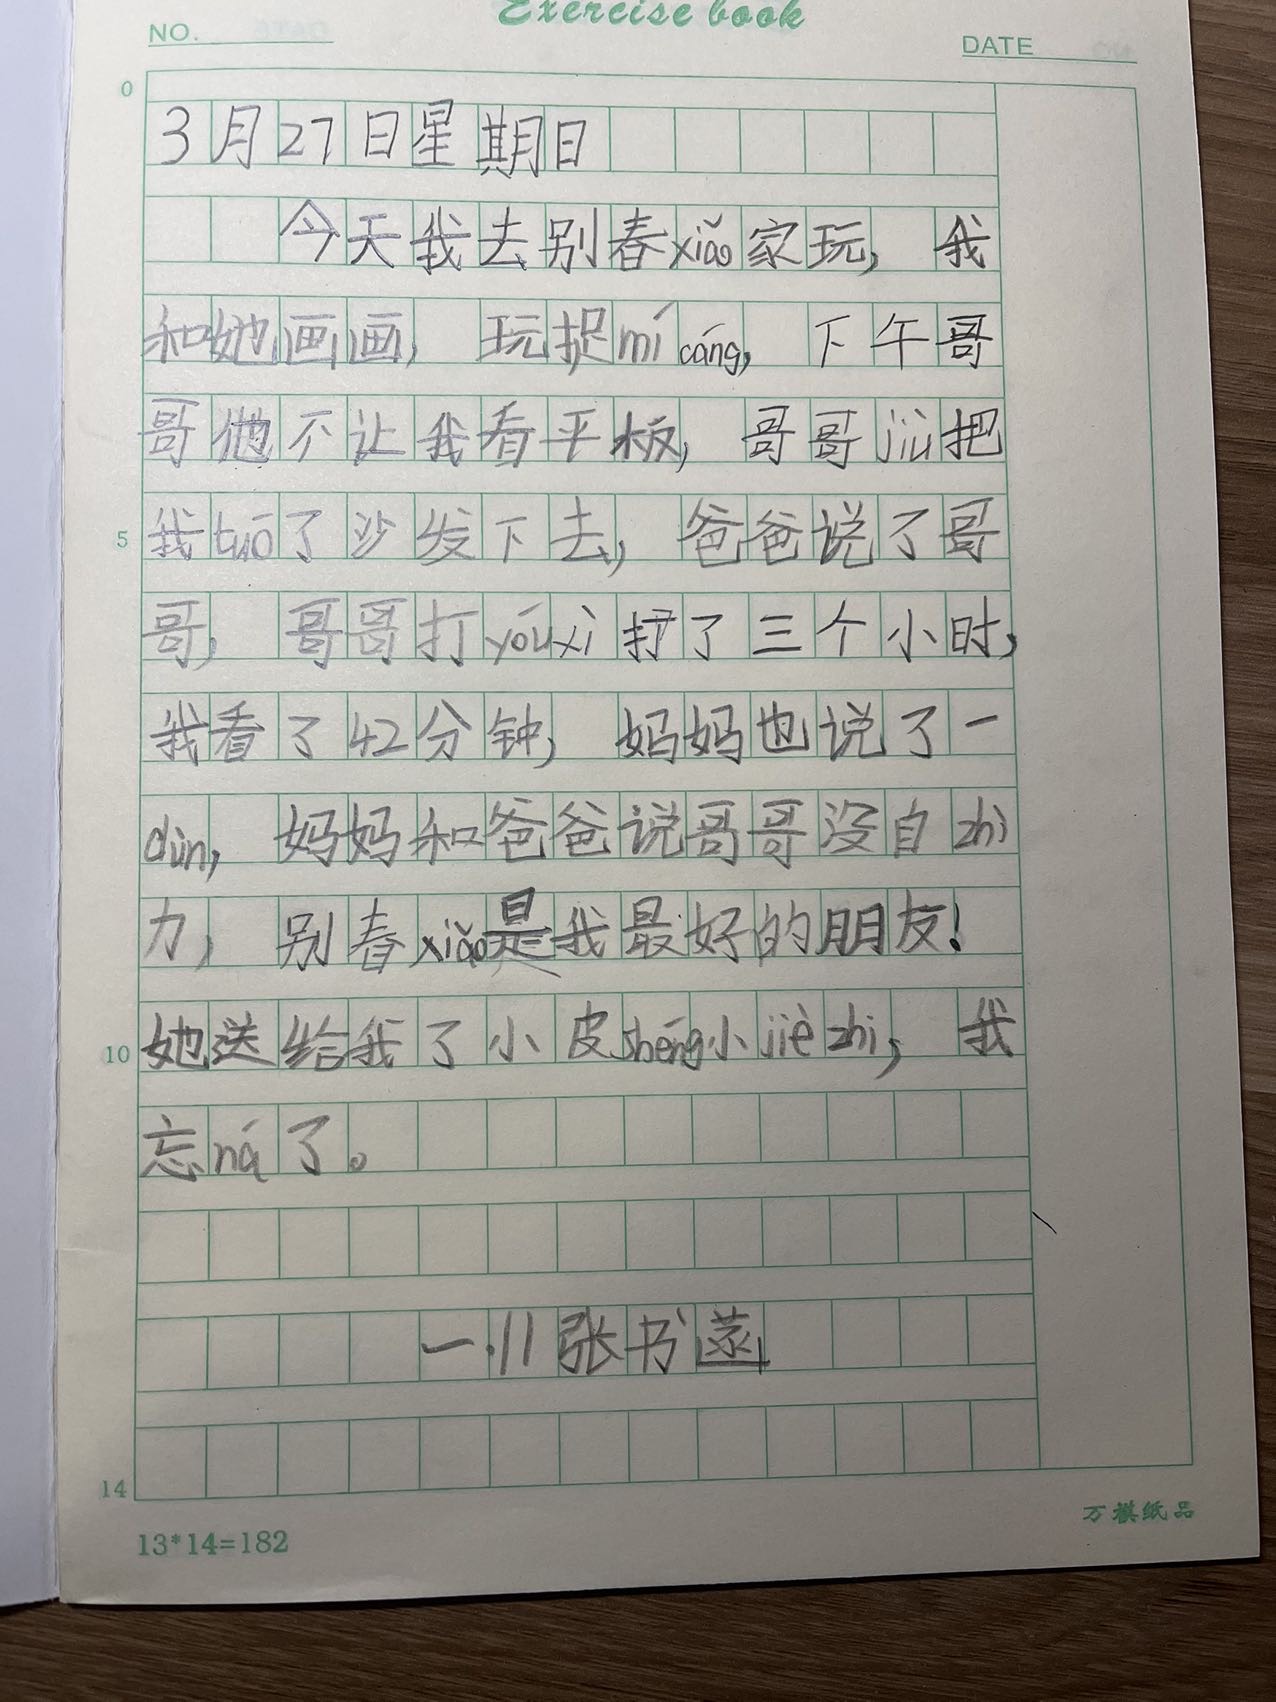 Exercise book
NO.
DATE
0
3月27日星期日
今天我去别春xiǎo家玩，我
和她画画，玩捉mí cáng，下午哥
哥他不让我看平板，哥哥jiù把
我tuō了沙发下去，爸爸说了哥
5
哥，哥哥打yóuxì打了三个小时，
我看了42分钟，妈妈也说了一
dùn，妈妈和爸爸说哥哥没自zhì
力，别春xiǎo是我最好的朋友！
她送给我了小皮shéng小jièzhi，我
10
忘ná了。
一.11张书
14
13*14=182
万祺纸品